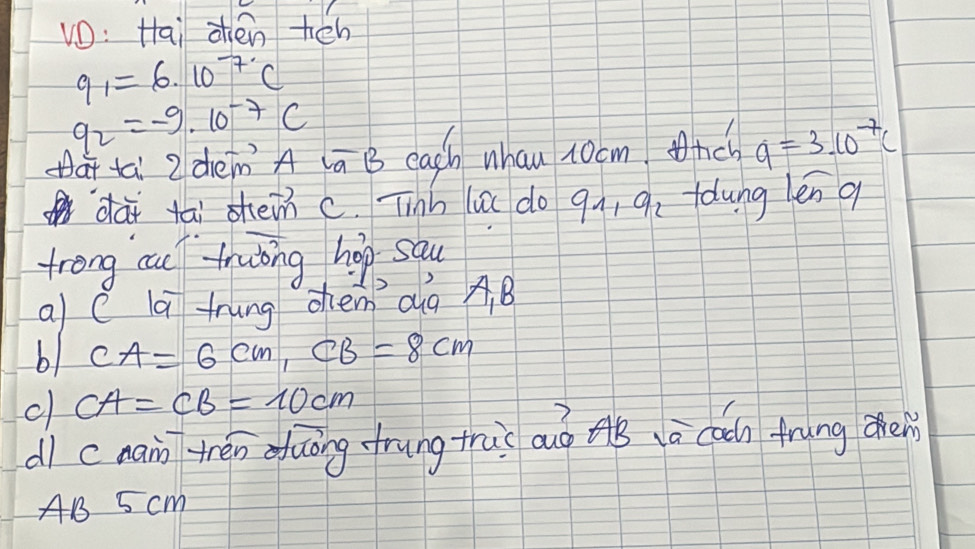 VD: Hai điện tích
q₁ = 6.10⁻⁷ C
q₂ = -9.10⁻⁷ C
Đặt tại 2 điểm A và B cách nhau 10cm. Đtích q = 3.10⁻⁷C
đặt tại điểm C. Tính lực do q₁, q₂ tdụng lên q
trong các trường hợp sau
a) C là trung điểm của A,B
b) CA = 6 cm, CB = 8 cm
c) CA = CB = 10cm
d) C nằm trên đường trung trực của AB và cách trung điểm
AB 5 cm